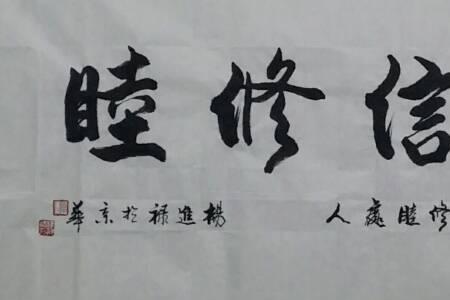 信修睦
修睦處人 楊進祿於京華